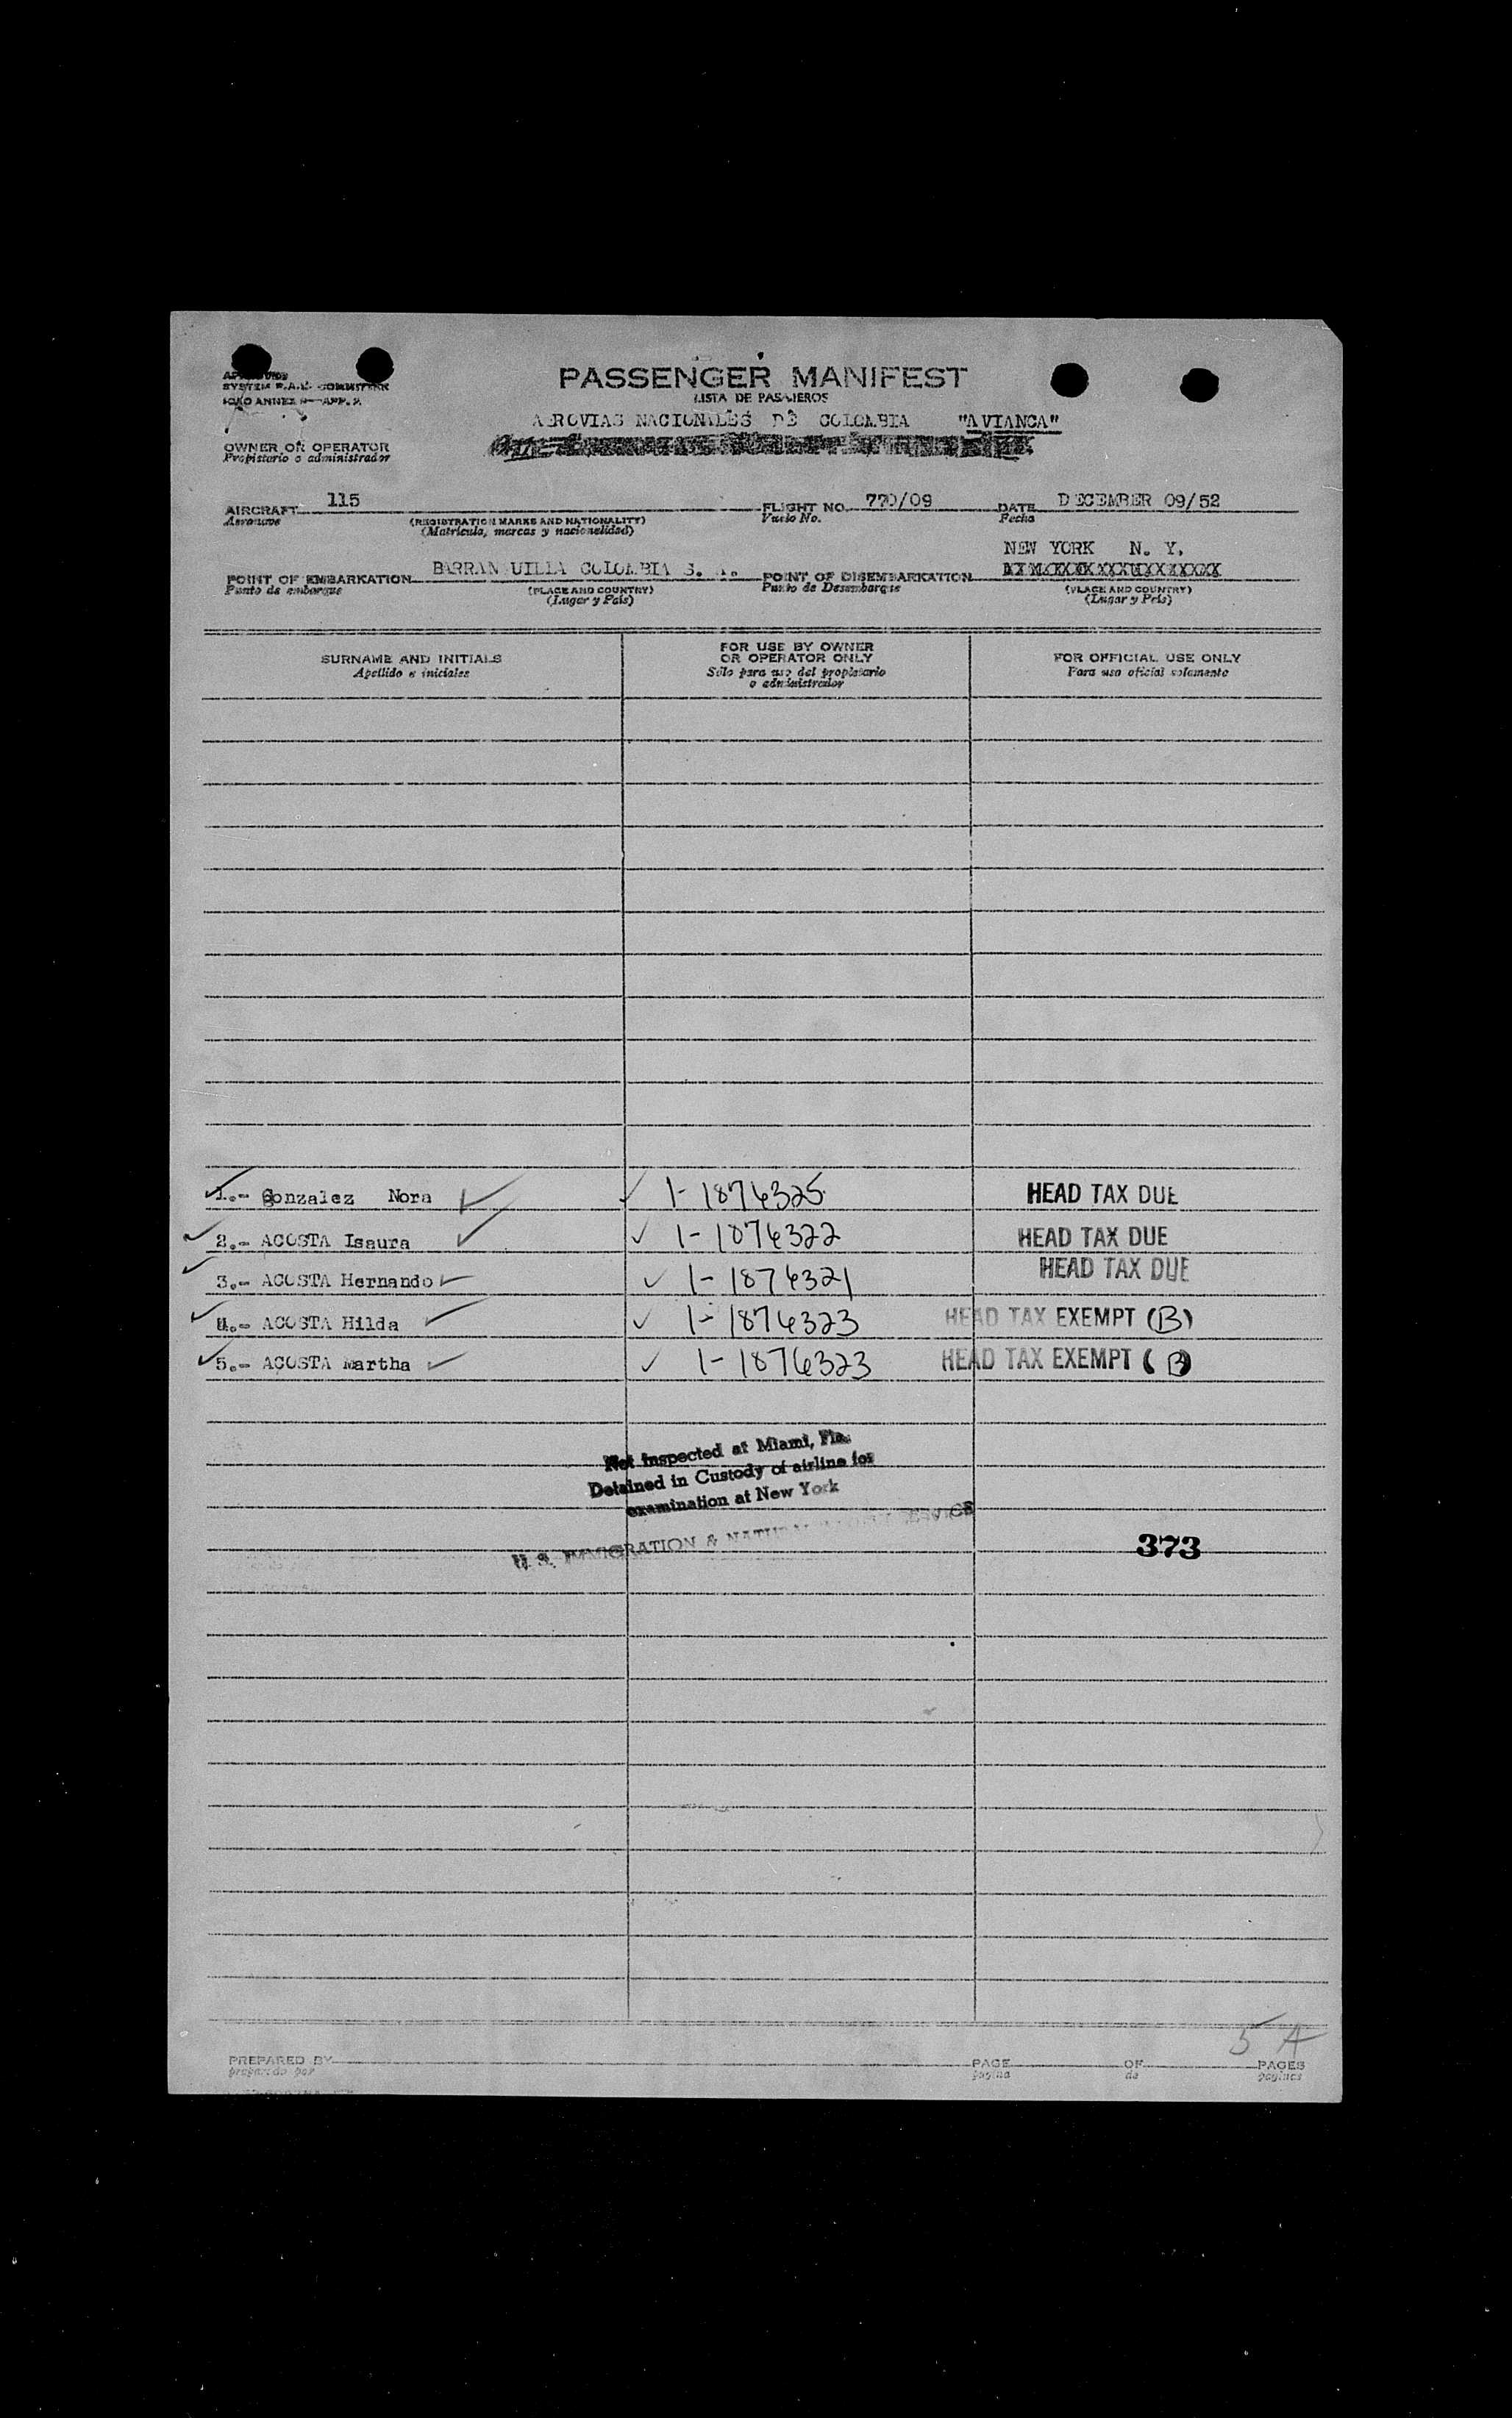 PASSENGER MANIFEST
LISTA DE PASAJEROS
AEROVIAS NACIONALES DE COLOMBIA "AVIANCA"
OWNER OR OPERATOR
Propietario o administrador
AIRCRAFT 115 FLIGHT NO. 770/09 DATE DECEMBER 09/52
Aeronave (REGISTRATION MARKS AND NATIONALITY) Vuelo No. Fecha
(Matrícula, marcas y nacionalidad)
NEW YORK N. Y.
POINT OF EMBARKATION BARRAN UILLA COLOMBIA S. A. POINT OF DISEMBARKATION
Punto de embarque (PLACE AND COUNTRY) Punto de Desembarque (PLACE AND COUNTRY)
(Lugar y País) (Lugar y País)
SURNAME AND INITIALS
Apellido e iniciales
FOR USE BY OWNER
OR OPERATOR ONLY
Sólo para uso del propietario
o administrador
FOR OFFICIAL USE ONLY
Para uso oficial solamente
1.- Gonzalez Nora 1-1876325 HEAD TAX DUE
2.- ACOSTA Isaura 1-1876322 HEAD TAX DUE
3.- ACOSTA Hernando 1-1876321 HEAD TAX DUE
4.- ACOSTA Hilda 1-1876323 HEAD TAX EXEMPT (B)
5.- ACOSTA Martha 1-1876323 HEAD TAX EXEMPT (B)
Not inspected at Miami, Fla.
Detained in Custody of airline for
examination at New York
U. S. IMMIGRATION & NATURALIZATION SERVICE
373
5 A
PREPARED BY PAGE OF PAGES
preparado por página de páginas